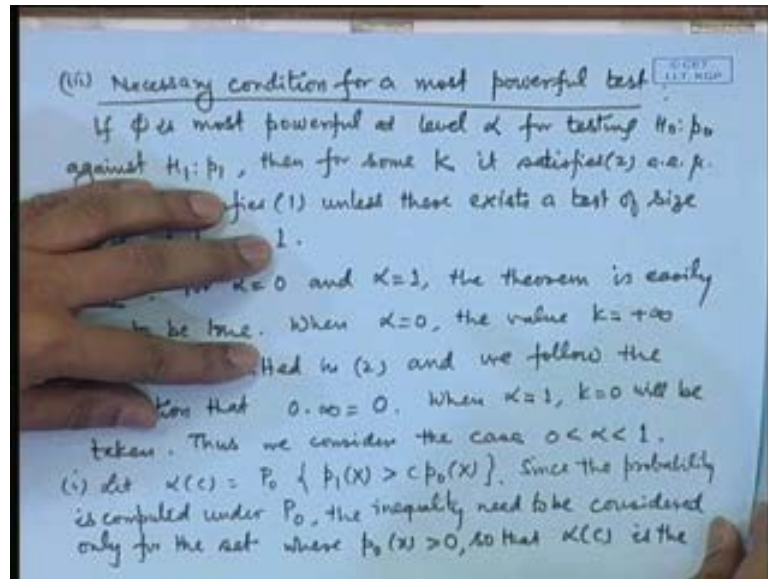 (iii) Necessary condition for a most powerful test :
© CET
I.I.T. KGP
If ϕ is most powerful at level α for testing H₀: p₀
against H₁: p₁, then for some k it satisfies (2) a.e. μ.
fies (1) unless there exists a test of size
1.
α = 0 and α = 1, the theorem is easily
to be true. When α = 0, the value k = +∞
tted in (2) and we follow the
tion that 0.∞ = 0. When α = 1, k = 0 will be
taken. Thus we consider the case 0 < α < 1.
(i) Let α(c) = P₀ { p₁(X) > c p₀(X) }. Since the probability
is computed under P₀, the inequality need to be considered
only for the set where p₀(x) > 0, so that α(c) is the